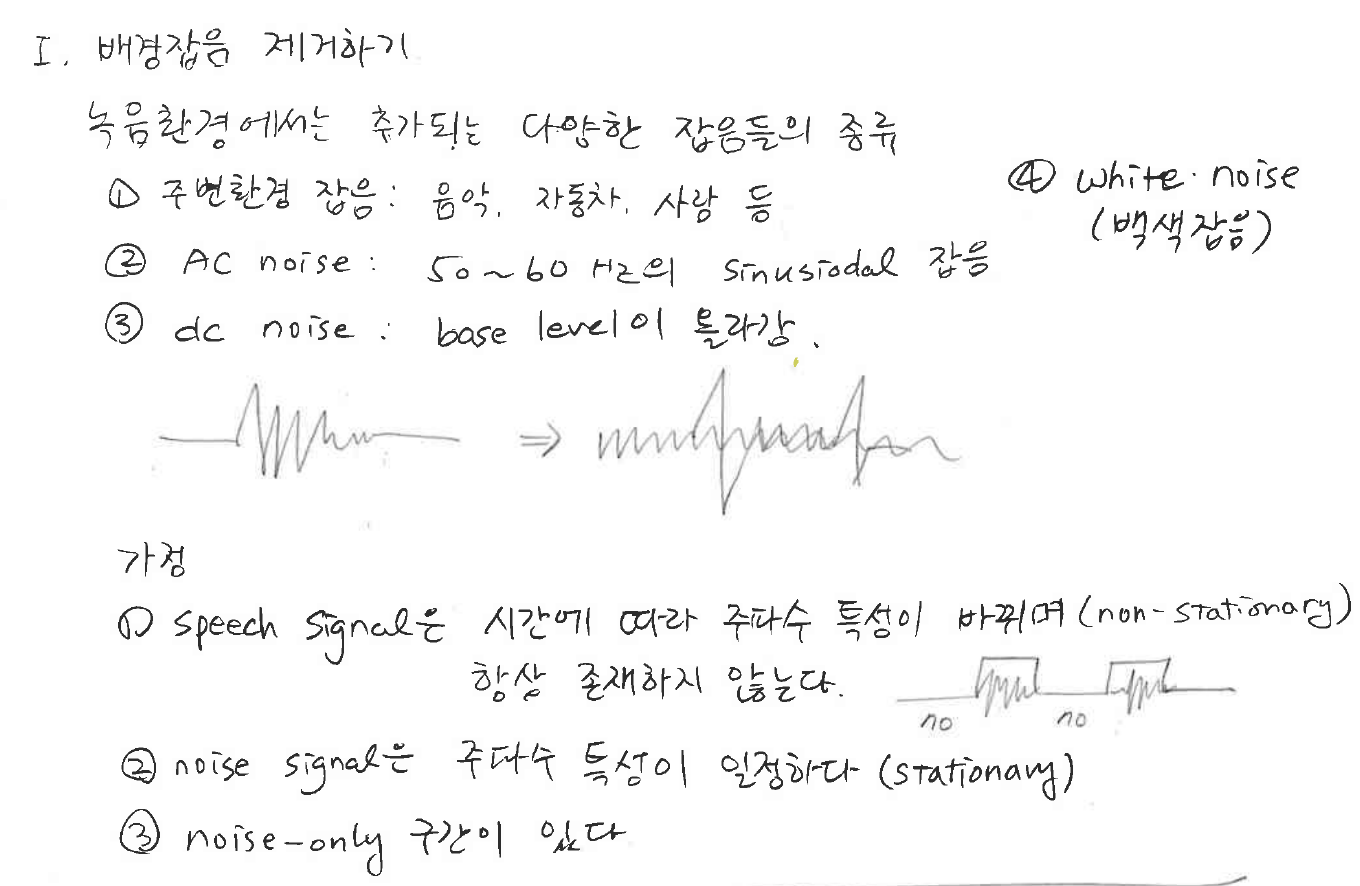 I. 배경잡음 제거하기
녹음환경에서는 추가되는 다양한 잡음들의 종류
① 주변환경 잡음 : 음악, 자동차, 사람 등
② AC noise : 50~60 Hz의 sinusiodal 잡음
③ dc noise : base level이 올라감.
④ white noise
(백색잡음)
가정
① speech signal은 시간에 따라 주파수 특성이 바뀌며 (non-stationary)
항상 존재하지 않는다.
no no
② noise signal은 주파수 특성이 일정하다 (stationary)
③ noise-only 구간이 있다